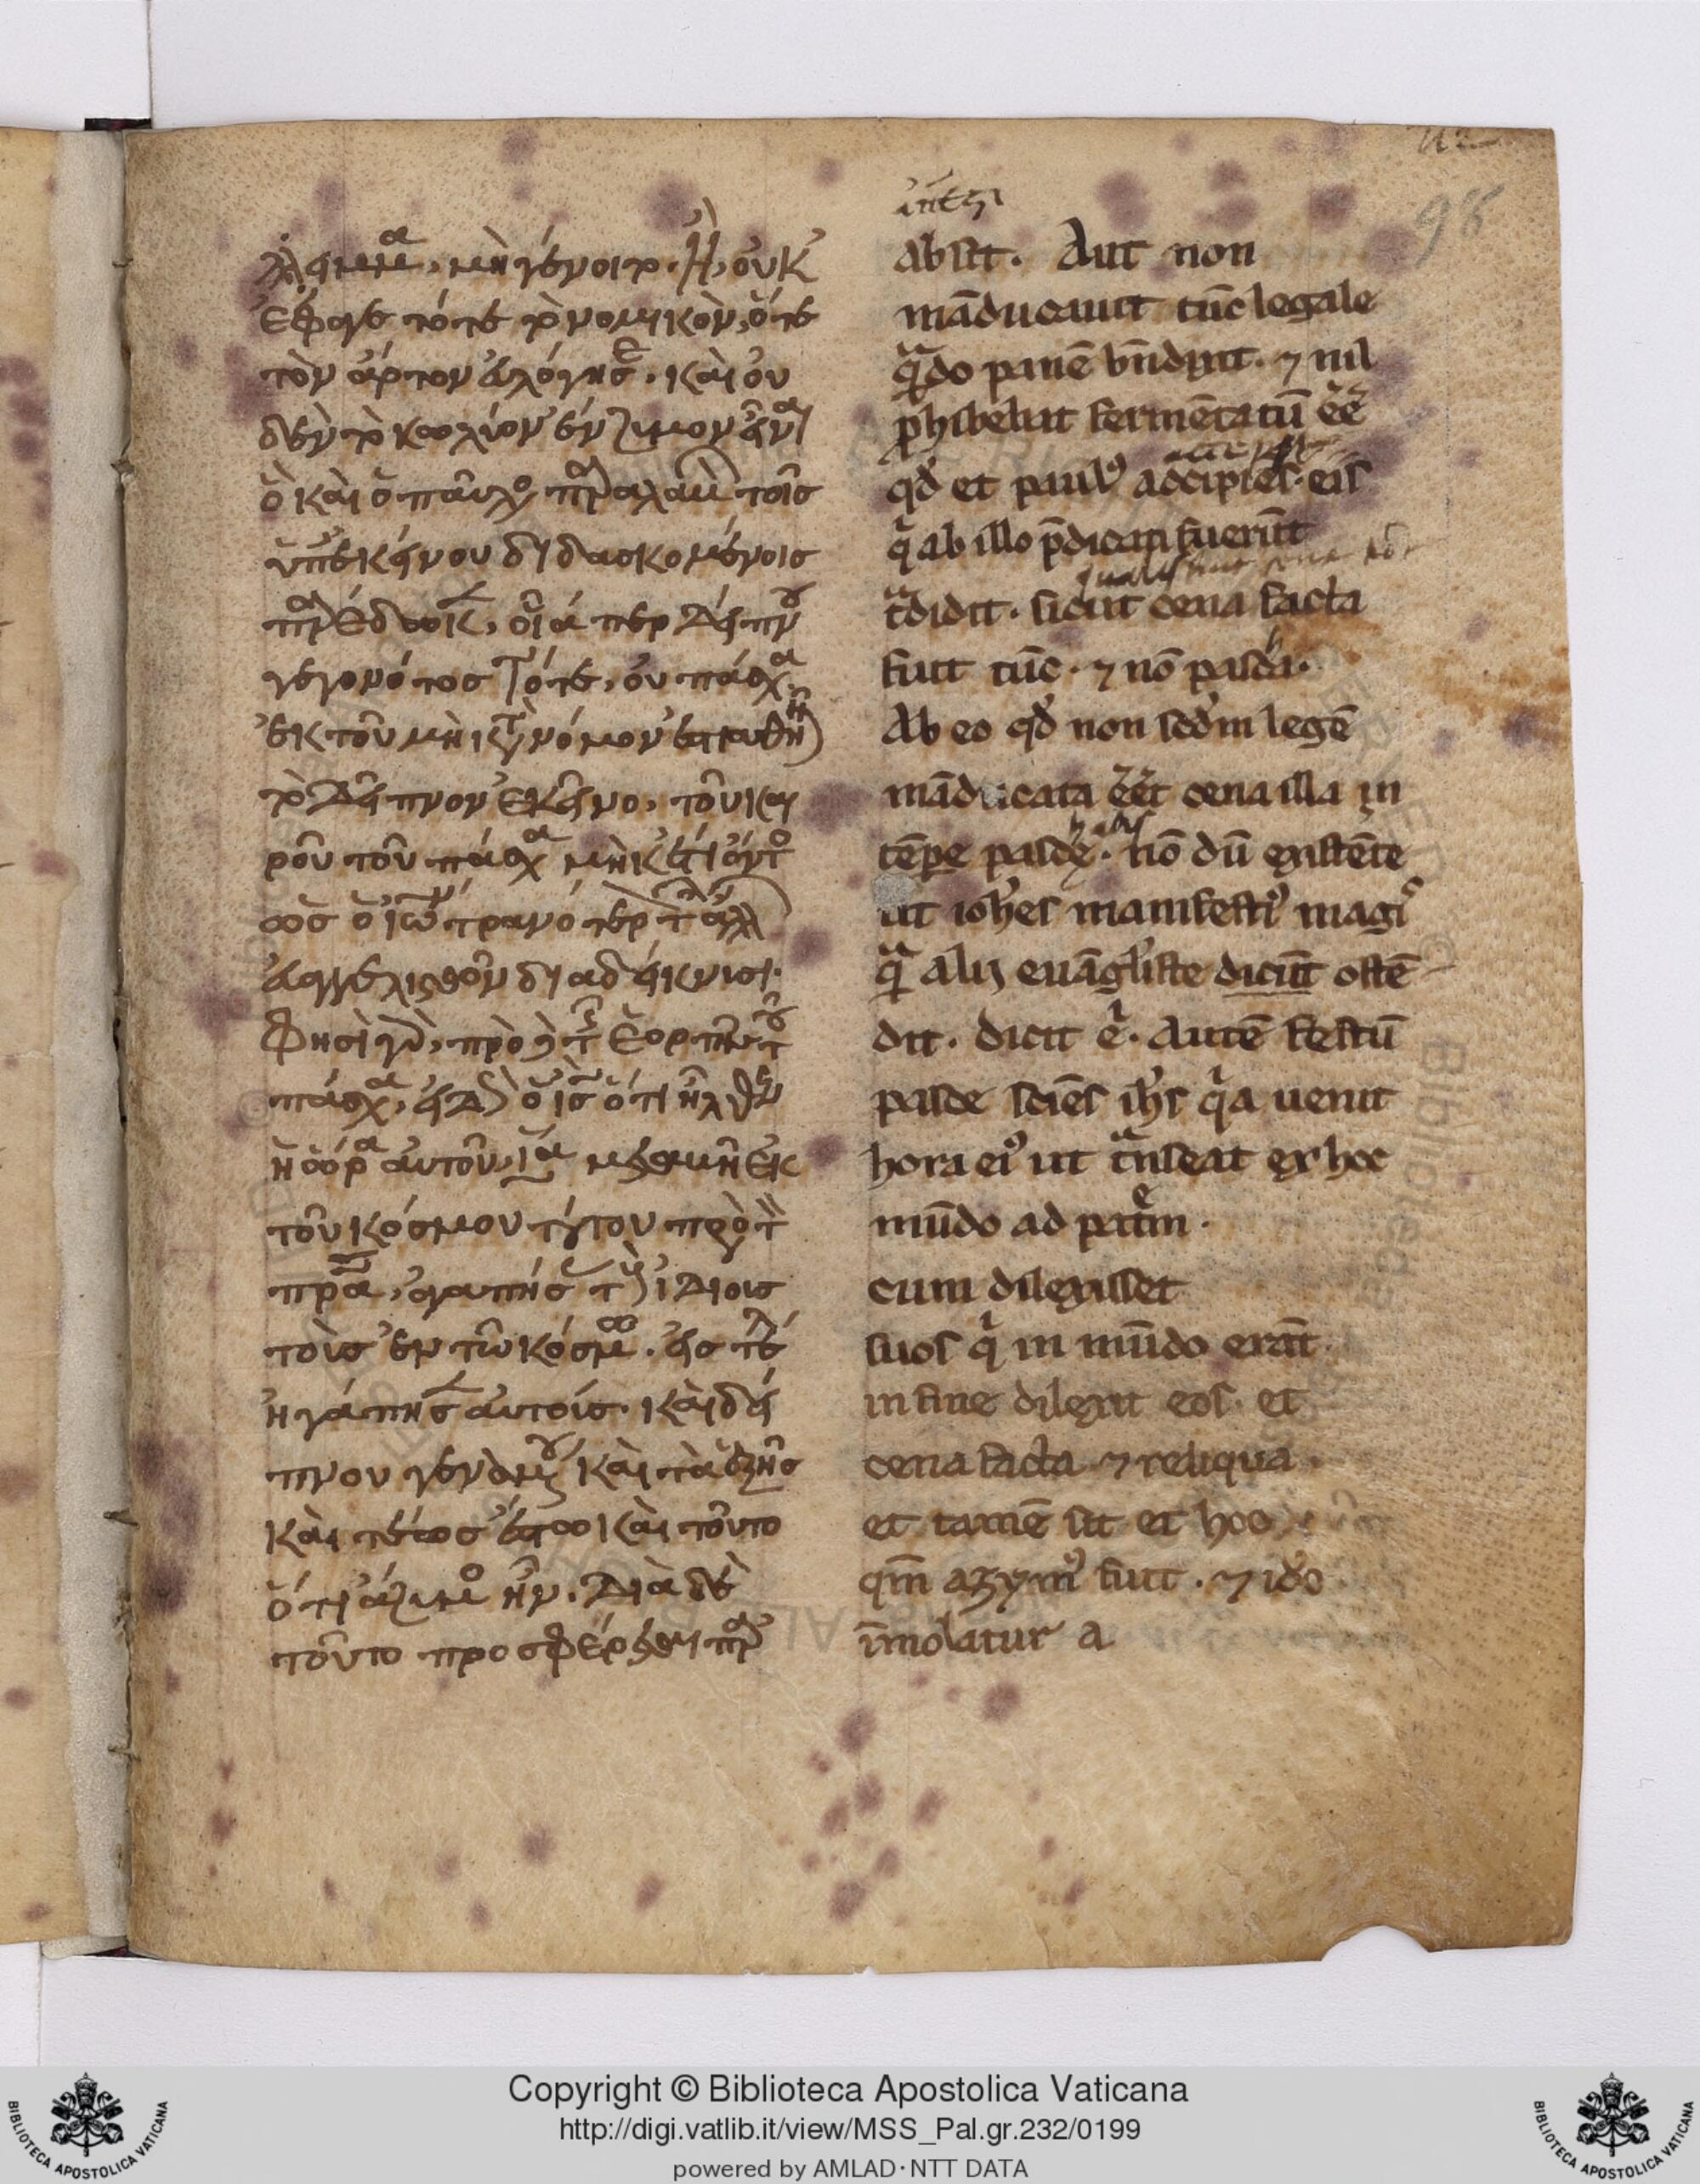 98
μὴ γένοιτο. Ἢ οὐκ
ἔφαγε τότε τὸ νομικὸν, ὅτε
τὸν ἄρτον εὐλόγησε. καὶ οὐ
δὲν τὸ κωλύον ἔνζυμον εἶναι
ὃ καὶ ὁ παῦλος παραλαβὼν τοῖς
ὑπ' ἐκείνου διδασκομένοις
παρέδωκεν, οἷά περ δείπνου
γεγονότος τότε, οὐ πάσχα
ἐκ τοῦ μὴ κατὰ νόμον ἑστιαθῆναι
τὸ δεῖπνον ἐκεῖνο, τοῦ και
ροῦ τοῦ πάσχα μὴ ὄντος
ὡς ὁ ἰω τρανότερον τῶν ἄλλων
εὐαγγελιστῶν διαδείκνυσι.
Φησὶ γὰρ, πρὸ δὲ τῆς ἑορτῆς τοῦ
πάσχα, εἰδὼς ὁ ις ὅτι ἦλθεν
ἡ ὥρα αὐτοῦ, ἵνα μεταβῇ ἐκ
τοῦ κόσμου τούτου πρὸς τὸν
πρα, ἀγαπήσας τοὺς ἰδίοις
τοῖς ἐν τῷ κόσμω. εἰς τέλος
ἠγάπησεν αὐτοῖς. καὶ δεί
πνου γενομένου καὶ τὰ ἑξῆς
καὶ τέως ἔστω καὶ τοῦτο
ὅτι ἄζυμος ἦν. Διὰ δὲ
τοῦτο προσφέρεσθαι παρ'
absit. Aut non
māducauit tūc legale
qͣdo panē bn̄dixit. ⁊ nil
p̱hibebat fermētatū eē̄
qď et paulꝰ accipiēs. eis
qͥ ab illo p̄dicati fuerūt
tͣdidit. sicut cena facta
fuit tūc. ⁊ nō pascha.
Ab eo qď non scďm legē
māducata eēt cena illa in
tēpe pasce. nō dū existēte
ut ioħes manifestiꝰ magis
qͣ alij euāgliste dicūt ostē
dit. dicit ē. Autē festū
pasce sciēs iħs qͥa uenit
hora eiꝰ ut tͣnseat ex hoc
mūdo ad patͤm.
cum dilexisset
suos qͥ in mūdo erāt
in fine dilexit eos. et
cena facta ⁊ reliqua.
et tamē sit et hoc
qm̄ azymꝰ fuit. ⁊ iďo
īmolatur a
Copyright © Biblioteca Apostolica Vaticana
http://digi.vatlib.it/view/MSS_Pal.gr.232/0199
powered by AMLAD·NTT DATA
BIBLIOTECA APOSTOLICA VATICANA
BIBLIOTECA APOSTOLICA VATICANA